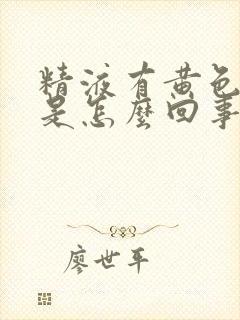 精液有黄色
是怎麽回事
廖世平